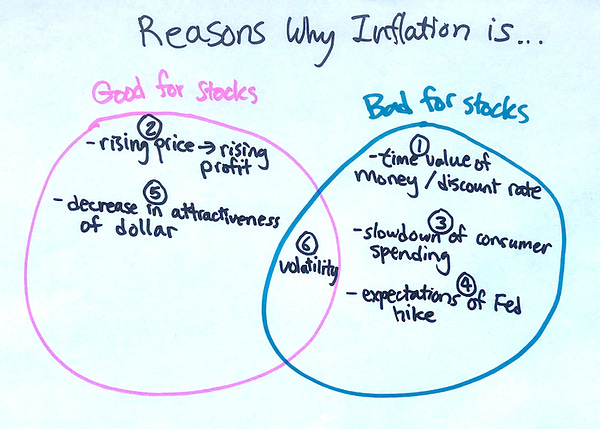 Reasons Why Inflation is...
Good for stocks
②
- rising price → rising
profit
⑤
- decrease in attractiveness
of dollar
⑥
volatility
Bad for stocks
①
- time value of
money / discount rate
③
- slowdown of consumer
spending
④
- expectations of Fed
hike